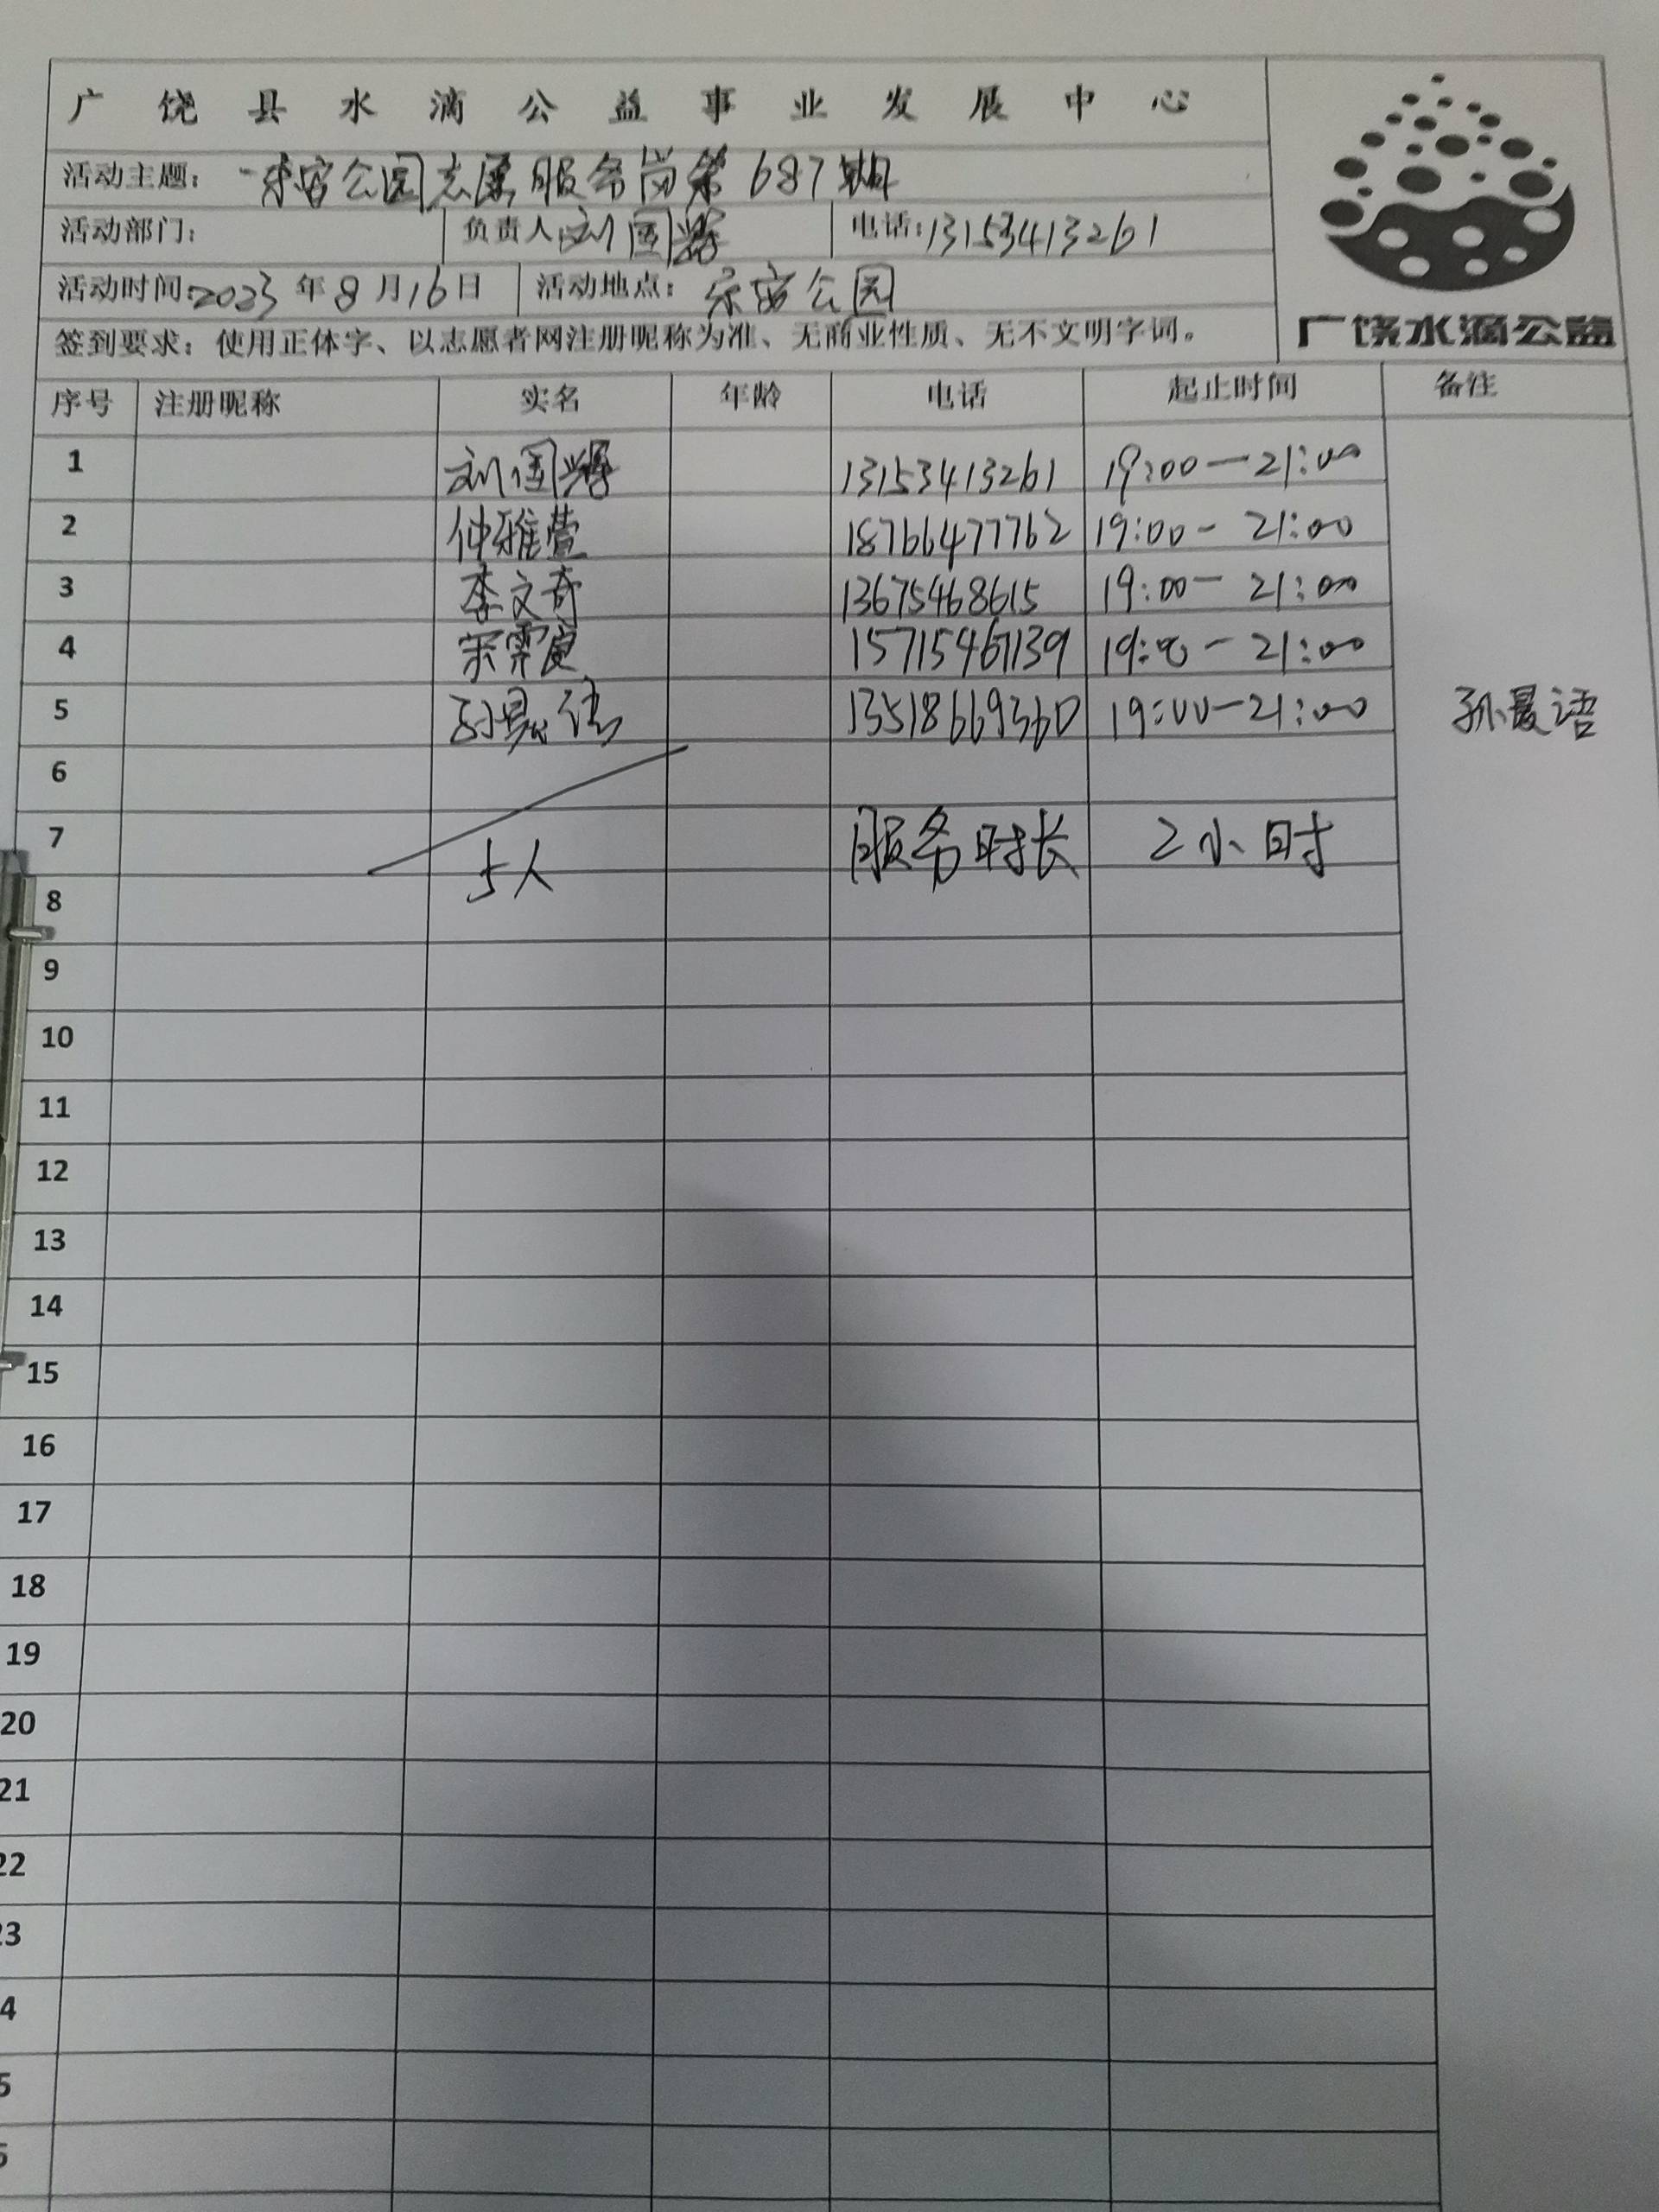 广饶县水滴公益事业发展中心
活动主题：乐安公园志愿服务岗第687期
活动部门： 负责人：刘国辉 电话：13153413261
活动时间：2023年8月16日 活动地点：乐安公园
签到要求：使用正体字、以志愿者网注册昵称为准、无商业性质、无不文明字词。
广饶水滴公益
序号 注册昵称 实名 年龄 电话 起止时间 备注
1 刘国辉 13153413261 19:00-21:00
2 仲雅萱 18766477762 19:00-21:00
3 李文奇 13675468615 19:00-21:00
4 15715467139 19:00-21:00
5 13518669360 19:00-21:00 孙晨语
6
7 5人 服务时长 2小时
8
9
10
11
12
13
14
15
16
17
18
19
20
21
22
23
4
5